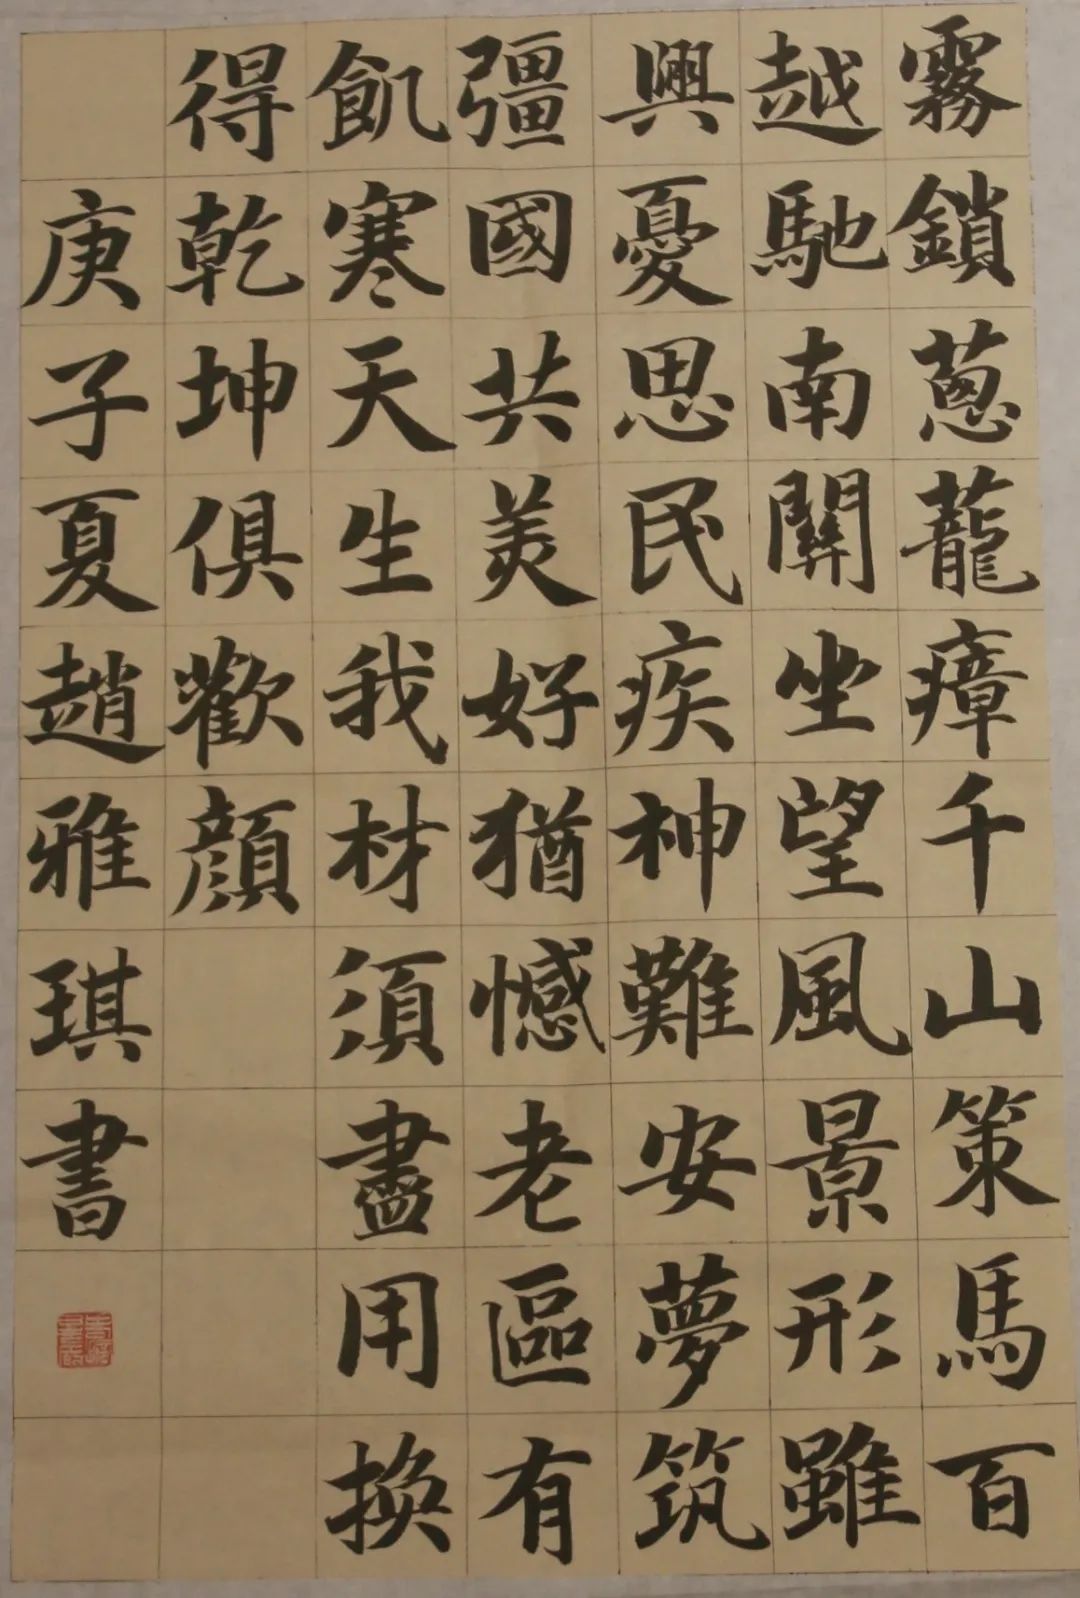 霧鎖蔥蘢瘴千山策馬百
越馳南關坐望風景形雖
興憂思民疾神難安夢筑
疆國共美好猶憾老區有
飢寒天生我材須盡用換
得乾坤俱歡顏
庚子夏趙雅琪書